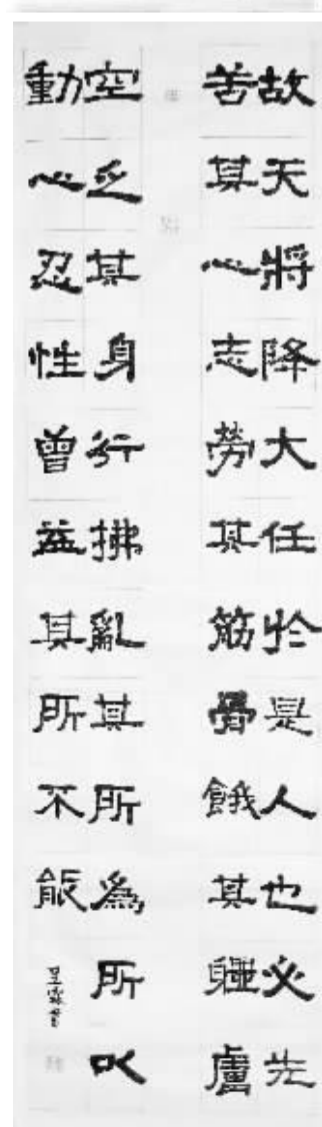 故天將降大任於是人也必先
苦其心志勞其筋骨餓其軆膚
空乏其身行拂亂其所為所以
動心忍性曾益其所不能
書